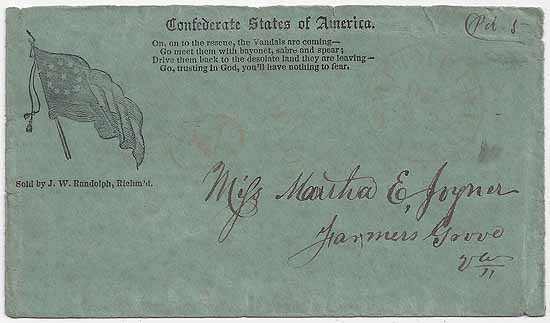 Confederate States of America.
Pd 5
On, on to the rescue, the Vandals are coming—
Go meet them with bayonet, sabre and spear;
Drive them back to the desolate land they are leaving—
Go, trusting in God, you'll have nothing to fear.
Sold by J. W. Randolph, Richm'd.
Miss Martha E, Joyner
Farmers Grove
Va